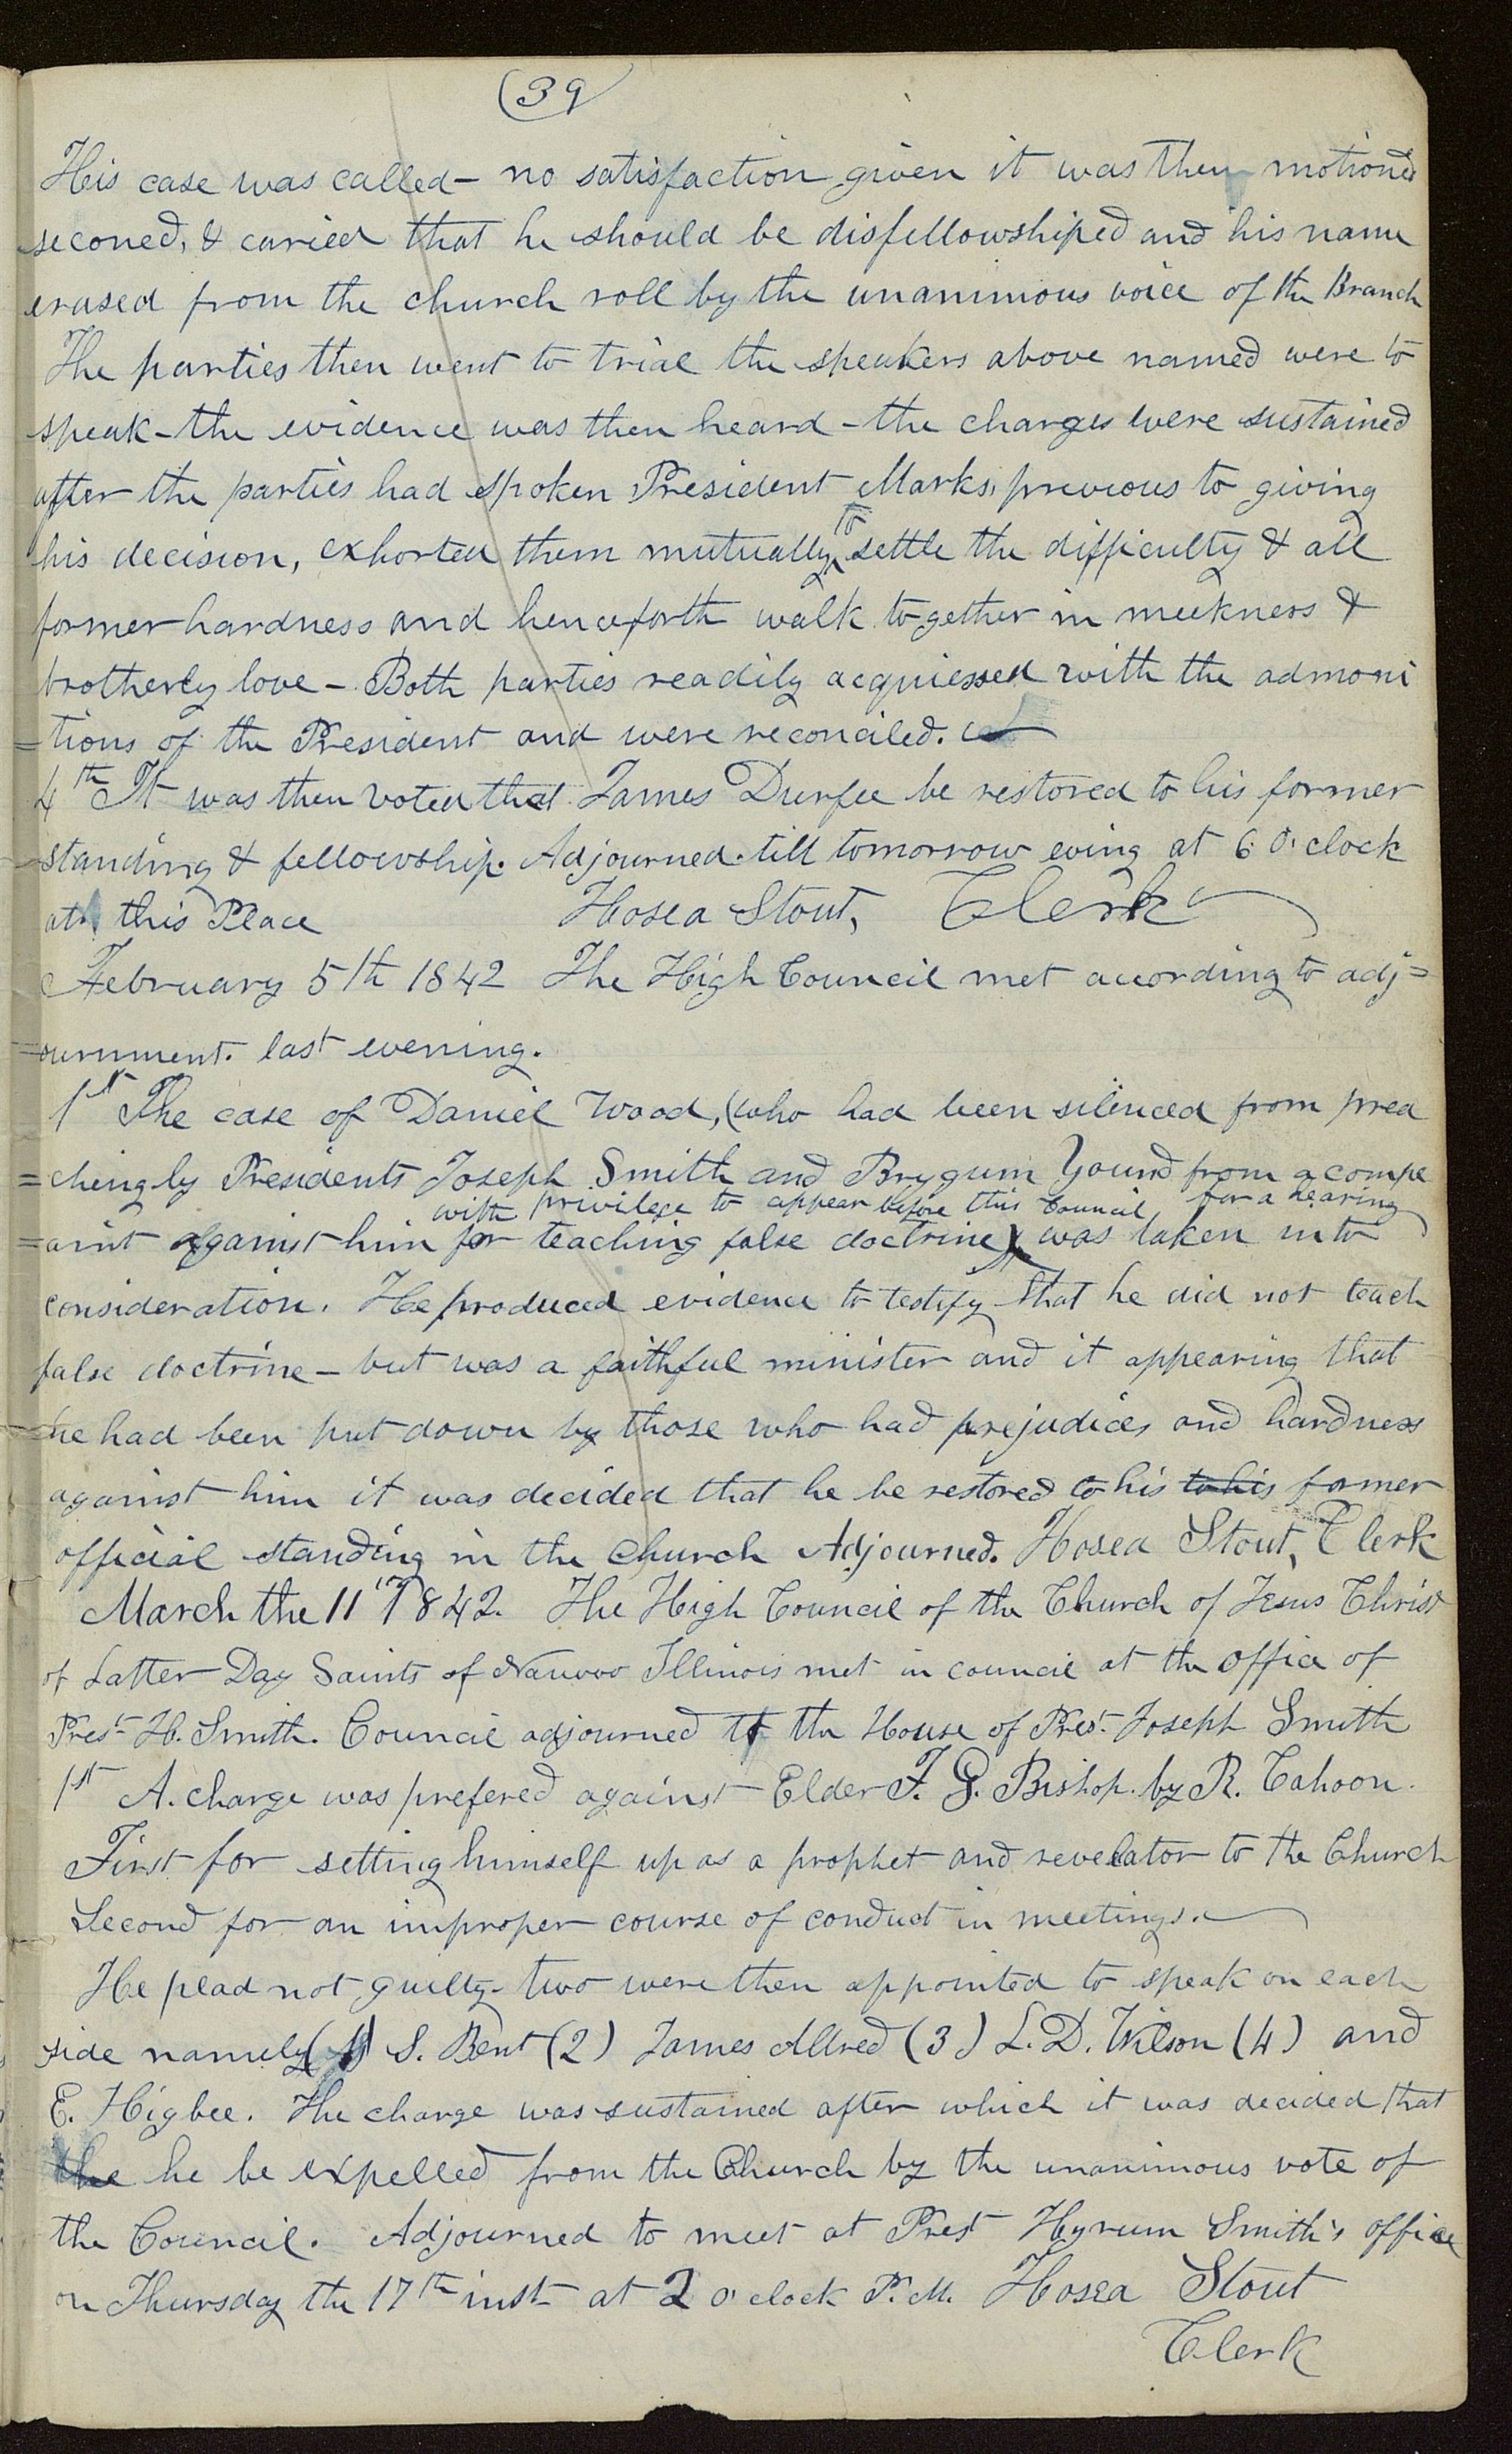 (39
His case was called – no satisfaction given it was then motioned
seconed, & caried that he should be disfellowshiped and his name
erased from the church roll by the unanimous voice of the Branch
The parties then went to trial the speakers above named were to
speak – the evidence was then heard – the charges were sustained
after the parties had spoken President Marks, previous to giving
his decision, exhorted them mutually to settle the difficulty & all
former hardness and henceforth walk together in meekness &
brotherly love – Both parties readily acquiessed with the admoni
=tions of the President and were reconciled.
4th It was then voted that James Durfee be restored to his former
standing & fellowship. Adjourned till tomorrow eving at 6 O'clock
at this Place Hosea Stout, Clerk
February 5th 1842 The High Council met according to adj=
=ournment. last evening.
1st The case of Daniel Wood, (who had been silenced from prea
=ching by Presidents Joseph Smith and Brygum Yound from a compl
with privilege to appear before this Council, for a hearing
=aint against him for teaching false doctrine) was taken into
consideration. He produced evidence to testify that he did not teach
false doctrine – but was a faithful minister and it appearing that
he had been put down by those who had prejudices and hardness
against him it was decided that he be restored to his to his former
official standing in the church Adjourned. Hosea Stout, Clerk
March the 11th 1842. The High Council of the Church of Jesus Christ
of Latter Day Saints of Nauvoo Illinois met in council at the office of
Prest H. Smith. Council adjourned to the House of Prest Joseph Smith
1st A. charge was prefered against Elder F. G. Bishop. by R. Cahoon.
First for setting himself up as a prophet and revelator to the Church
Second for an improper course of conduct in meetings.
He plead not guilty – two were then appointed to speak on each
side namely (1) S. Bent (2) James Allred (3) L. D. Wilson (4) and
E. Higbee. The charge was sustained after which it was decided that
the he be expelled from the Church by the unanimous vote of
the Council. Adjourned to meet at Prest Hyrum Smith's office
on Thursday the 17th inst at 2 o'clock P.M. Hosea Stout
Clerk